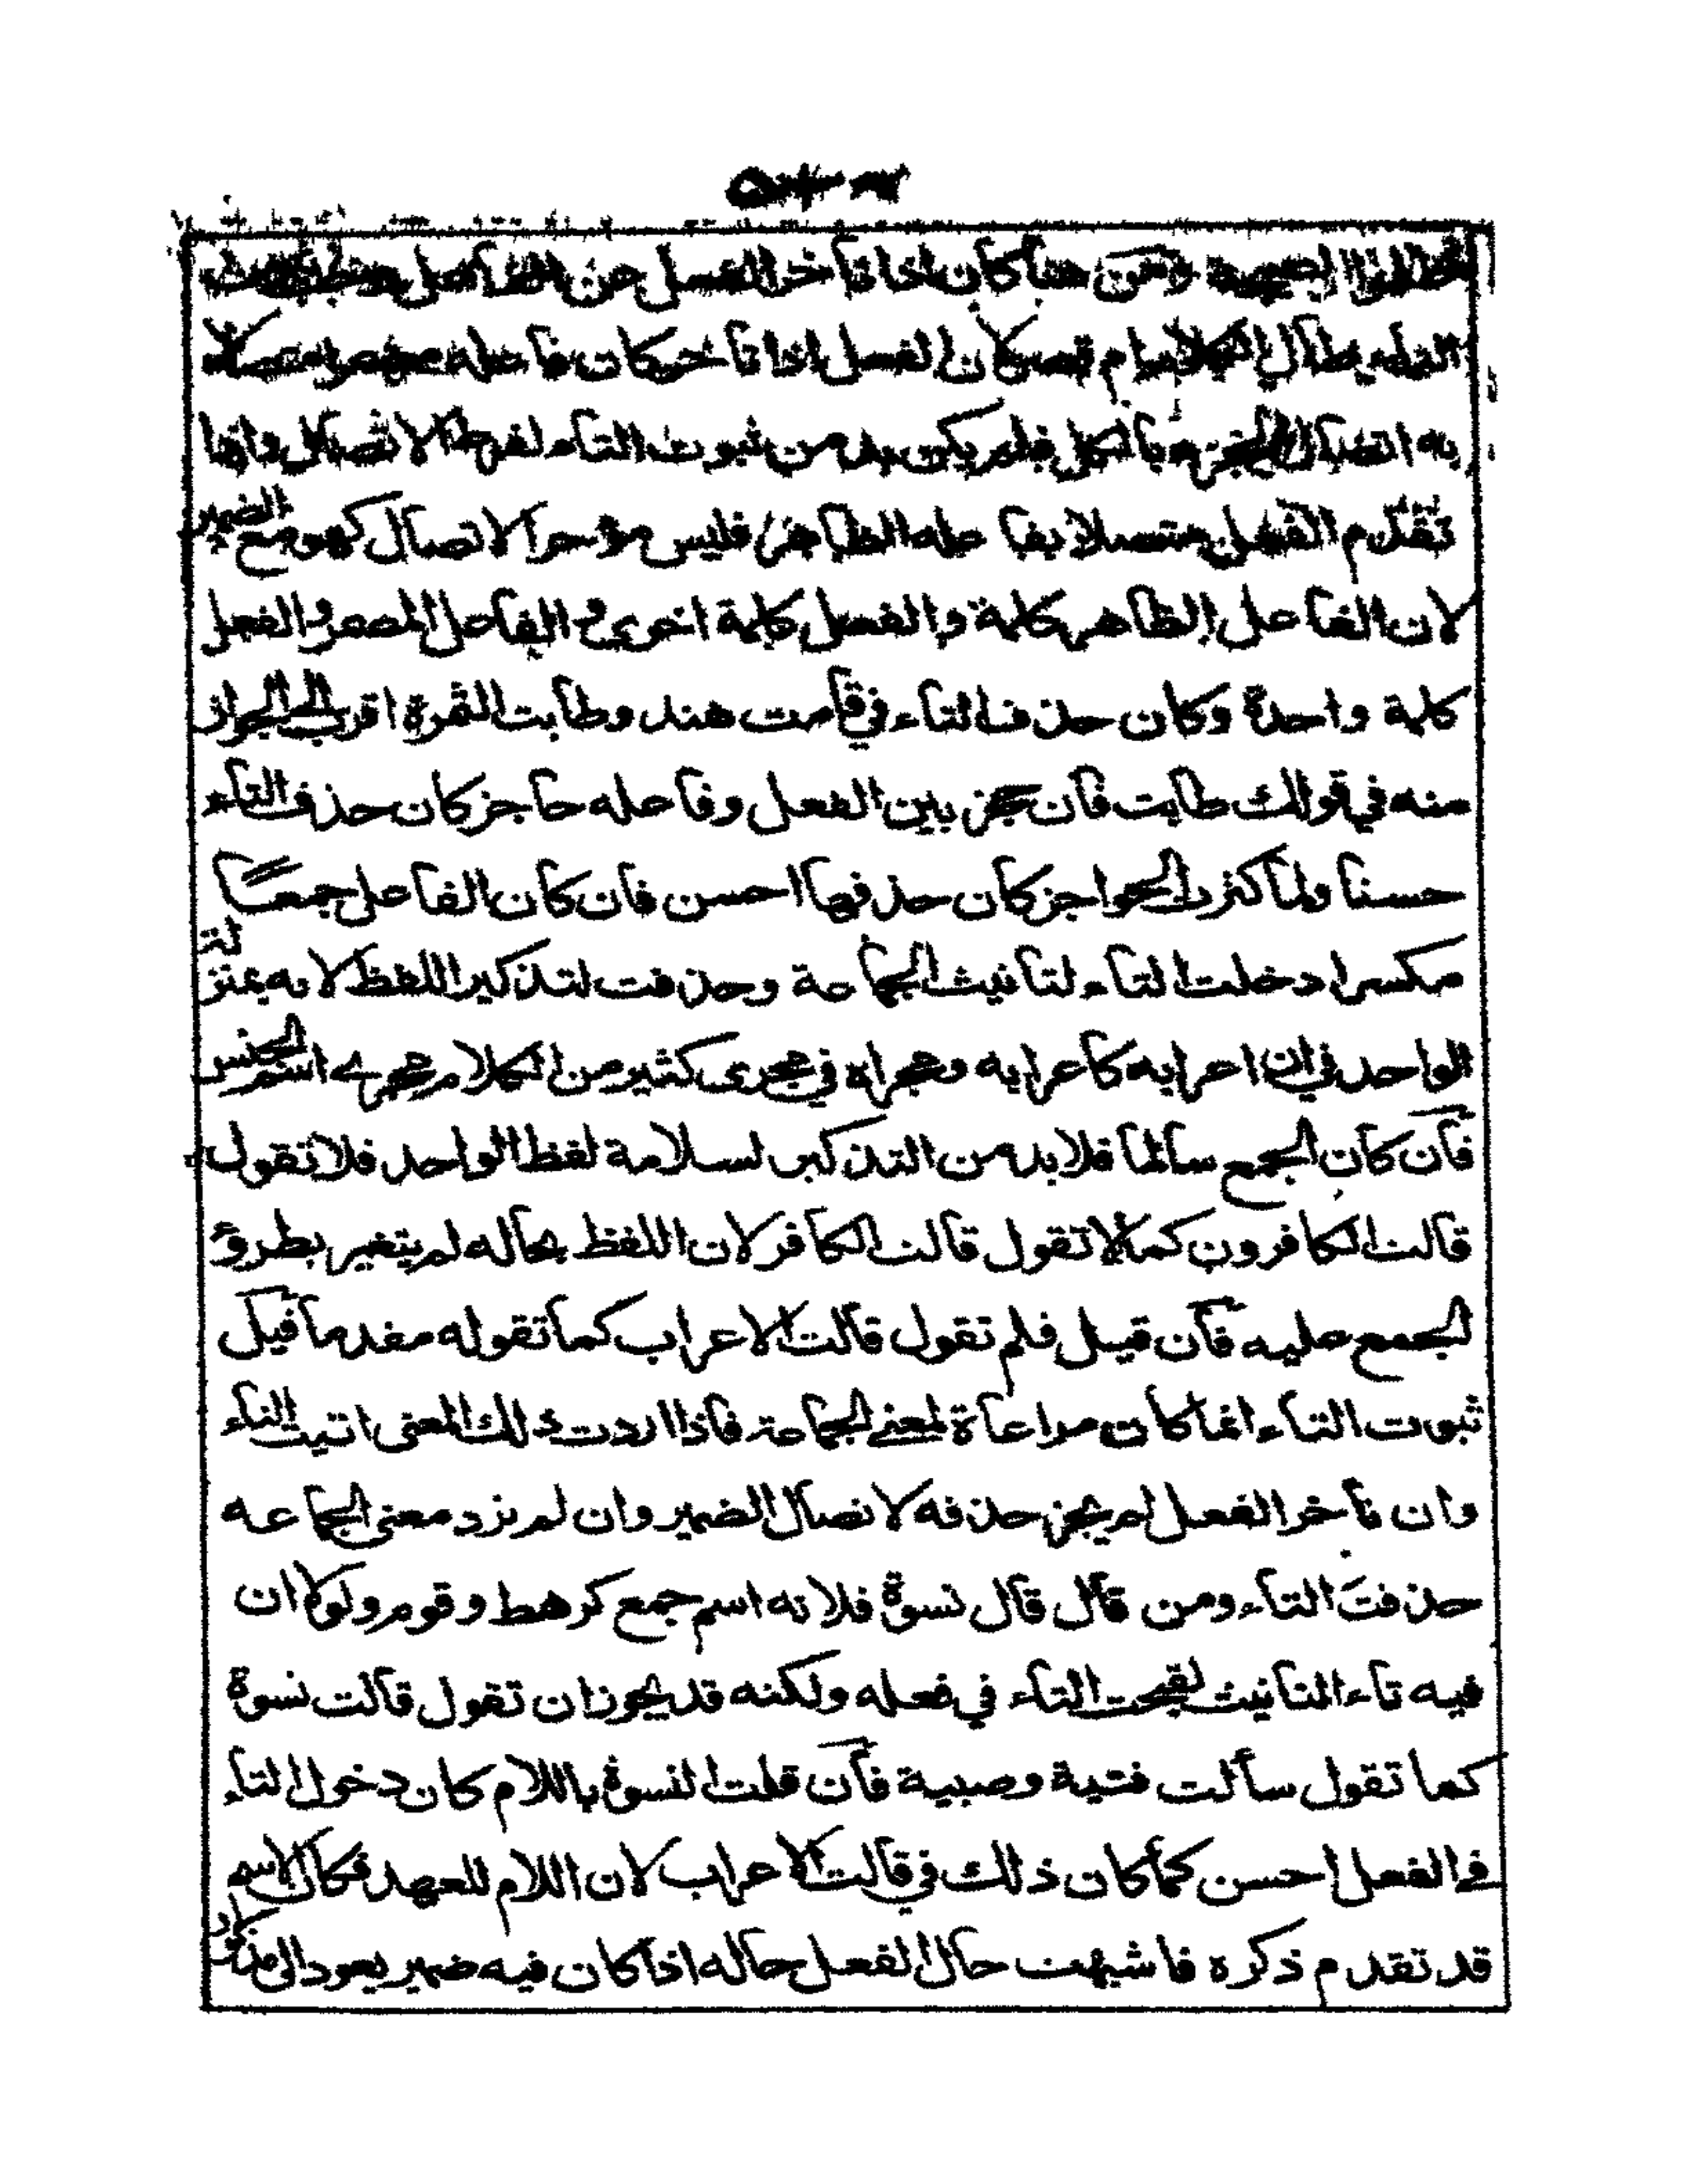 ومن هنا كان اذا تاخر الفعل عن الفاعل وجب
لان الفعل اذا تاخر كان فاعله مضمرا متصلا
به اتصال الجزء بالكل فلم يكن بد من ثبوت التاء لفرط الاتصال واذا
تقدم الفعل متصلا بفاعله الظاهر فليس مؤخرا لاتصال كهو مع الضمير
لان الفاعل الظاهر كلمة والفعل كلمة اخرى و الفاعل المضمر والفعل
كلمة واحدة وكان حذف التاء في قامت هند وطابت الثمرة اقرب الى الجواز
منه في قولك طابت فان حجز بين الفعل وفاعله حاجز كان حذف التاء
حسنا ولما كثرت الحواجز كان حذفها احسن فان كان الفاعل جمعًا
مكسرا دخلت التاء لتانيث الجماعة وحذفت لتذكير اللفظ لانه بمنزلة
الواحد في ان اعرابه كاعرابه ومجراه في مجرى كثير من الكلام مجرى اسم الجنس
فان كان الجمع سالما فلا بد من التذكير لسلامة لفظ الواحد فلا تقول
قالت الكافرون كما لا تقول قالت الكافر لان اللفظ بحاله لم يتغير بطروؤ
الجمع عليه فان قيل فلم تقول قالت الاعراب كما تقوله مقدما قيل
ثبوت التاء انما كان مراعاة لمعنى الجماعة فاذا اردت ذلك المعنى اتيت التاء
وان تأخر الفعل لم يجز حذفه لاتصال الضمير وان لم ترد معنى الجماعه
حذفت التاء ومن قال قال نسوة فلانه اسم جمع كرهط وقوم ولولا ان
فيه تاء التانيث لقبحت التاء في فعله ولكنه قد يجوز ان تقول قالت نسوة
كما تقول سألت فتية وصبية فان قلت النسوة باللام كان دخول التاء
في الفعل احسن كما كان ذلك في قالت الاعراب لان اللام للعهد فكان الاسم
قد تقدم ذكره فاشبهت حال الفعل حاله اذا كان فيه ضمير يعود الى مذكور